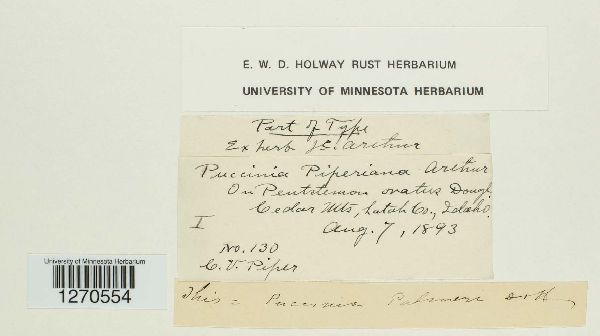 E. W. D. HOLWAY RUST HERBARIUM
UNIVERSITY OF MINNESOTA HERBARIUM
Part of Type
Ex herb Arthur
Puccinia Piperiana Arthur
On Pentstemon ovatus Dougl.
Cedar Mts, Latah Co., Idaho.
I
Aug. 7, 1893
No. 130
C. V. Piper
University of Minnesota Herbarium
1270554
This = Puccinia Palmeri